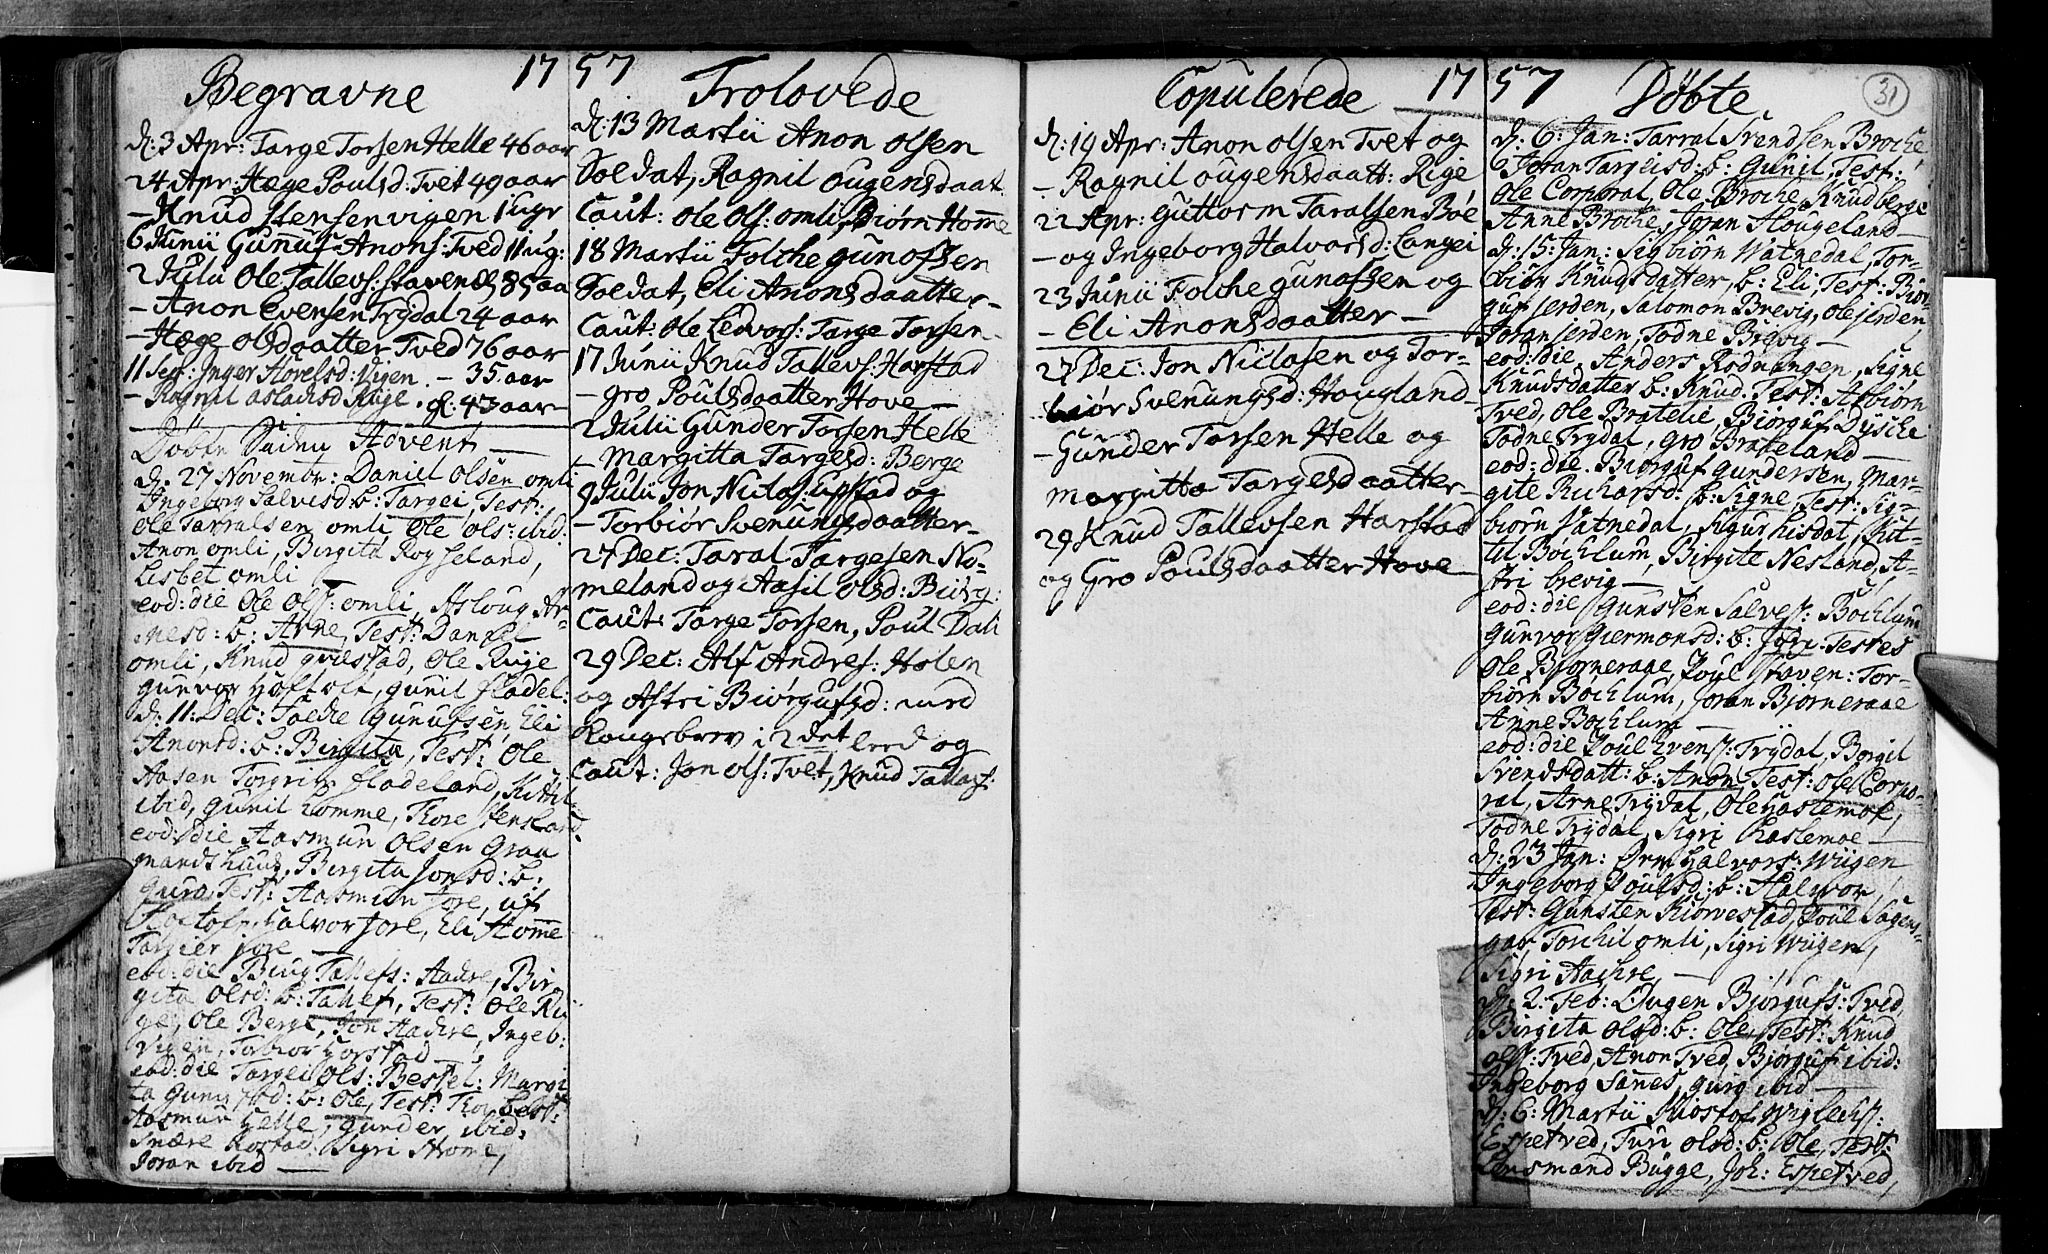 Begravne 17
d: 3 Apr: Targe Torsen Helle 46 aar
24 Apr: Hæge Poulsd: Tvet 49 aar
– Knud Stensen vigen 1 ugr
6 Junii Gunuf Anons: Tved 11 ug:
2 Julii Ole Tallevs: Stavend 85 aa
– Anon Evensen Trydal 24 aar
– Hæge olsdaatter Tved 76 aar
11 Sept: Inger Storelsd: Vigen – 35 aar
– Ragnil aslachsd Rige 43 aar
Døbte Siden Advent –
d: 27 November: Daniel Olsen omli
Ingeborg Salvesd b: Targei, Test:
Ole Tarralsen omli Ole Ols: ibid:
Anon omli, Birgita Roysseland,
Lisbet omli
eod: die Ole Ols: omli, Aslaug Ar-
nesd: b: Arne, Test: Daniel
omli, Knud qvistad, Ole Rige
gunvor Hoftoft, gunil fladel:
d: 11: Dec: Folche Gunufsen, Eli
Anonsd: b: Birgita, Test: Ole
Aasen Torgris fladeland, Kittil
ibid, gunil homme, Tore Stensland
eod: die Aasmun Olsen Graa
mandshuus, Birgita Jonsd: b:
guro, Test: Aasmun Jore,
Hoftoft, Halvor Jore, Eli Homme
Targier Jore –
eod: die Biug Tallefs: Aachre, Bir
gita Olsd: b: Tallef, Test: Ole Ri
ge, Ole Berge, Jon Aachre, Ingeb:
Vigen, Torbior Harstad –
eod: die Targei Ols: Bestel: Margi
ta gunufsd: b: Ole, Test: Best:
Aasmun Helle, gunder ibid:
Snære Rostad, Sigri Home,
Joran ibid –
57 Trolovede
d: 13 Martii Anon olsen
Soldat, Ragnil ougensdaat:
Caut: ole Ols: omli, Biørn Homme
18 Martii Folche gunofsen
Soldat, Eli Anonsdaatter –
Caut: Ole Ledvors: Targe Torsen –
17 Junii Knud Tallevs: Harstad
– gro Poulsdaatter Hove –
2 Julii Gunder Torsen Helle
– Margitta Targesd: Berge
9 Julii Jon Niclos: upstad og
– Torbiør Svenungsdaatter –
27 Dec: Taral Targesen No-
meland og Aasil olsd: Biug:
Caut: Targe Torsen, Poul Dale
29 Dec: Alf Andres: Holen
og Astri Biørgufsd: med
Kongebrev i 2det leed og
Caut: Jon ols: Tvet, Knud Tallafs:
Copulerede 17
d: 19 Apr: Anon olsen Tvet og
– Ragnil ougensdaatt: Rige
22 Apr: guttorm Taralsen Bøe
– og Ingeborg Halvorsd: Langei
23 Junii Folche gunofsen og
– Eli Anonsdaatter –
27 Dec: Jon Niclosen og Tor-
biør Svenungsd: Hougland –
– Gunder Torsen Helle og
margitta Targesdaatter –
29 Knud Tallevsen Harstad
og Gro Poulsdaatter Hove –
57 Døbte 31
d: 6: Jan: Tarral Svendsen Broche
Joran Targeisd: b: Gunil, Test:
Ole Corporal, Ole Broche, Knud berge
Anne Broche, Joran Hougeland –
d: 15: Jan: Sigbiørn Watnedal, Tor-
biør Knudsdatter, b: Eli, Test: Biør-
guf Jerden, Salomon Brevig, ole jerden
Joran Jerden, Todne Brevig –
eod: die, Anders Rodningen, Signe
Knudsdatter b: Knud, Test: Asbiørn
Tved, Ole Bratelie, Biørguf Dysche
Todne Trydal, gro Brokeland –
eod: die. Biørguf gundersen, Mar-
gite Richarsd: b: Signe, Test: Sig-
biørn Vatnedal, Sigur hisdal, Kit-
til Bochlum, Birgite Nesland, A-
stri brevig –
eod: die Gunsten Salves: Bochlum
gunvor giermonsd: b: Jøri: Testes
Ole Bjorneraae, Poul Staven: Tor-
biørn Bochlum, Joran Bjorneraae
Anne Bochlum –
eod: die Poul Evens: Trydal, Borgil
Svendsdatt: b: Anon, Test: Ole Corpo-
ral, Arne Trydal, Ole Haslemoe,
Todne Trydal, Sigri Haslemoe –
d: 23 Jan: Orm Halvors: Wigen
Ingeborg Poulsd: b: Halvor,
Test: Gunsten Kiørvestad, Poul Sagens-
gar, Torchil omli, Sigri Wigen,
Sigri Aachre, –
d: 2: Feb: Ougen Bjørgufs: Tved,
Birgita Olsd: b: Ole, Test: Knud
ols: Tved, Anon Tved, Bjørguf ibid:
Ingeborg Sannes, guro ibid –
d: 6: Martii Kristof Wiglechs:
Espetved, Turi olsd: b: Ole, Test:
Lensmand Bügge, Joh: Espetved,